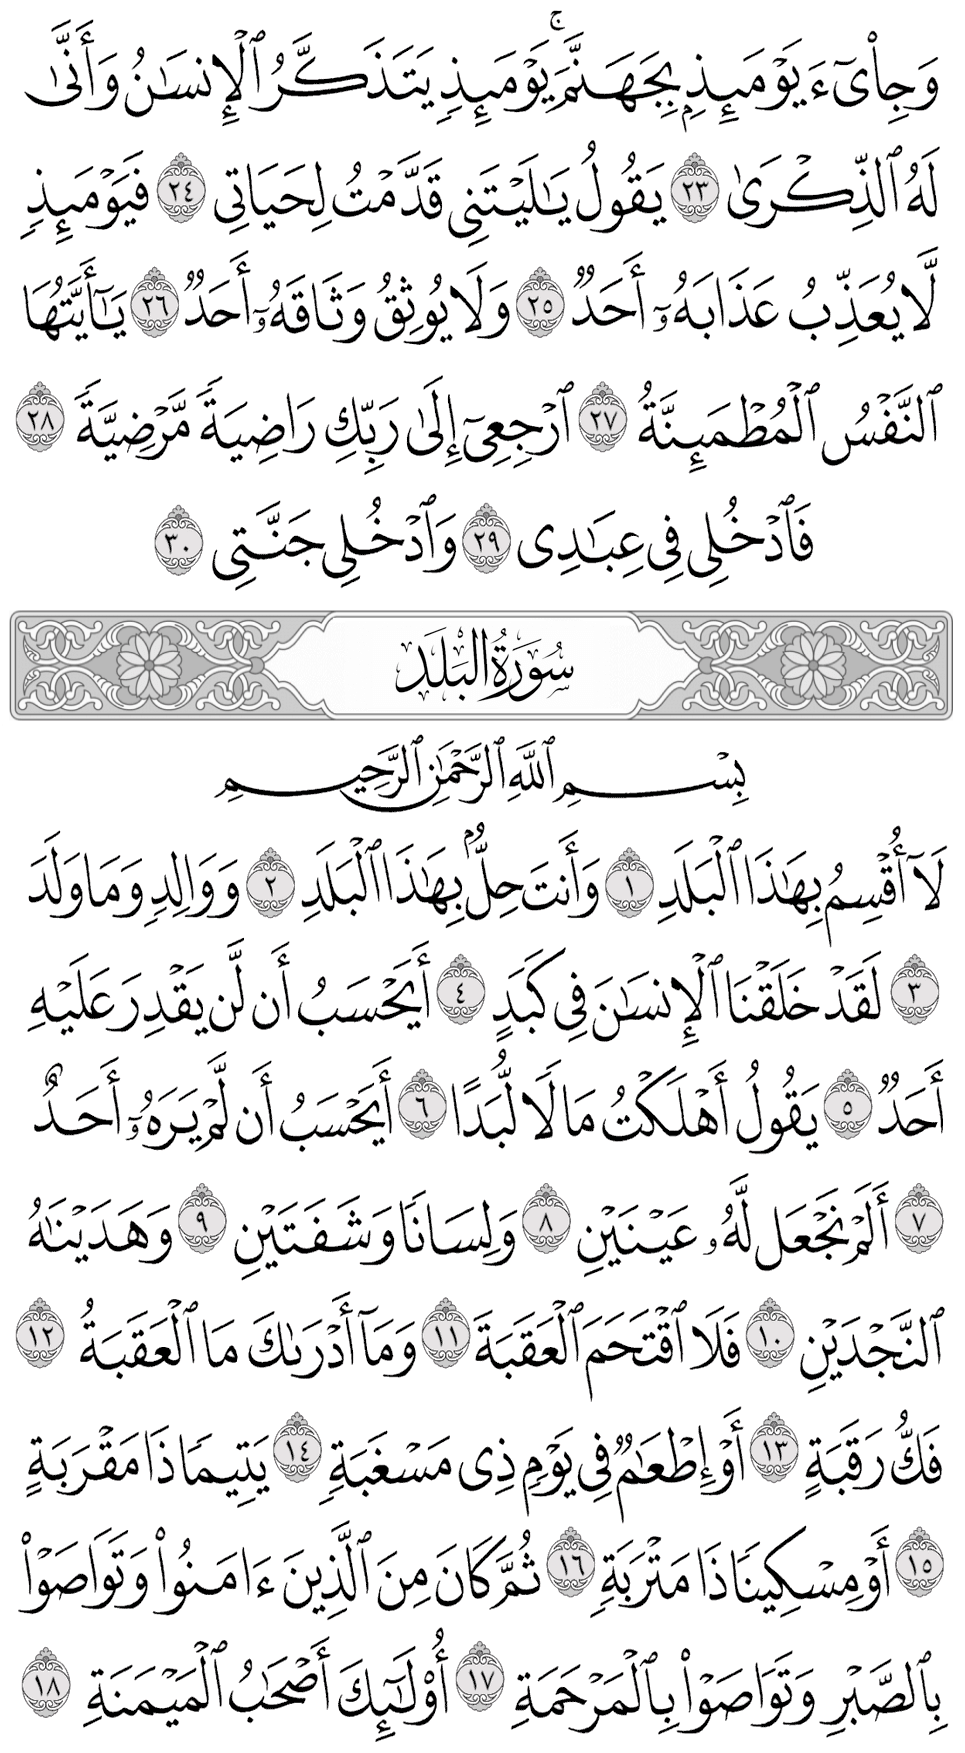 وَجِا۟ىٓءَ يَوْمَئِذِۭ بِجَهَنَّمَ ۚ يَوْمَئِذٍ يَتَذَكَّرُ ٱلْإِنسَـٰنُ وَأَنَّىٰ
لَهُ ٱلذِّكْرَىٰ ٢٣ يَقُولُ يَـٰلَيْتَنِى قَدَّمْتُ لِحَيَاتِى ٢٤ فَيَوْمَئِذٍ
لَّا يُعَذِّبُ عَذَابَهُۥٓ أَحَدٌ ٢٥ وَلَا يُوثِقُ وَثَاقَهُۥٓ أَحَدٌ ٢٦ يَـٰٓأَيَّتُهَا
ٱلنَّفْسُ ٱلْمُطْمَئِنَّةُ ٢٧ ٱرْجِعِىٓ إِلَىٰ رَبِّكِ رَاضِيَةً مَّرْضِيَّةً ٢٨
فَٱدْخُلِى فِى عِبَـٰدِى ٢٩ وَٱدْخُلِى جَنَّتِى ٣٠
سُورَةُ البَلَدِ
بِسْمِ ٱللَّهِ ٱلرَّحْمَـٰنِ ٱلرَّحِيمِ
لَآ أُقْسِمُ بِهَـٰذَا ٱلْبَلَدِ ١ وَأَنتَ حِلٌّۢ بِهَـٰذَا ٱلْبَلَدِ ٢ وَوَالِدٍ وَمَا وَلَدَ
٣ لَقَدْ خَلَقْنَا ٱلْإِنسَـٰنَ فِى كَبَدٍ ٤ أَيَحْسَبُ أَن لَّن يَقْدِرَ عَلَيْهِ
أَحَدٌ ٥ يَقُولُ أَهْلَكْتُ مَالًا لُّبَدًا ٦ أَيَحْسَبُ أَن لَّمْ يَرَهُۥٓ أَحَدٌ
٧ أَلَمْ نَجْعَل لَّهُۥ عَيْنَيْنِ ٨ وَلِسَانًا وَشَفَتَيْنِ ٩ وَهَدَيْنَـٰهُ
ٱلنَّجْدَيْنِ ١٠ فَلَا ٱقْتَحَمَ ٱلْعَقَبَةَ ١١ وَمَآ أَدْرَىٰكَ مَا ٱلْعَقَبَةُ ١٢
فَكُّ رَقَبَةٍ ١٣ أَوْ إِطْعَـٰمٌ فِى يَوْمٍ ذِى مَسْغَبَةٍ ١٤ يَتِيمًا ذَا مَقْرَبَةٍ
١٥ أَوْ مِسْكِينًا ذَا مَتْرَبَةٍ ١٦ ثُمَّ كَانَ مِنَ ٱلَّذِينَ ءَامَنُوا۟ وَتَوَاصَوْا۟
بِٱلصَّبْرِ وَتَوَاصَوْا۟ بِٱلْمَرْحَمَةِ ١٧ أُو۟لَـٰٓئِكَ أَصْحَـٰبُ ٱلْمَيْمَنَةِ ١٨